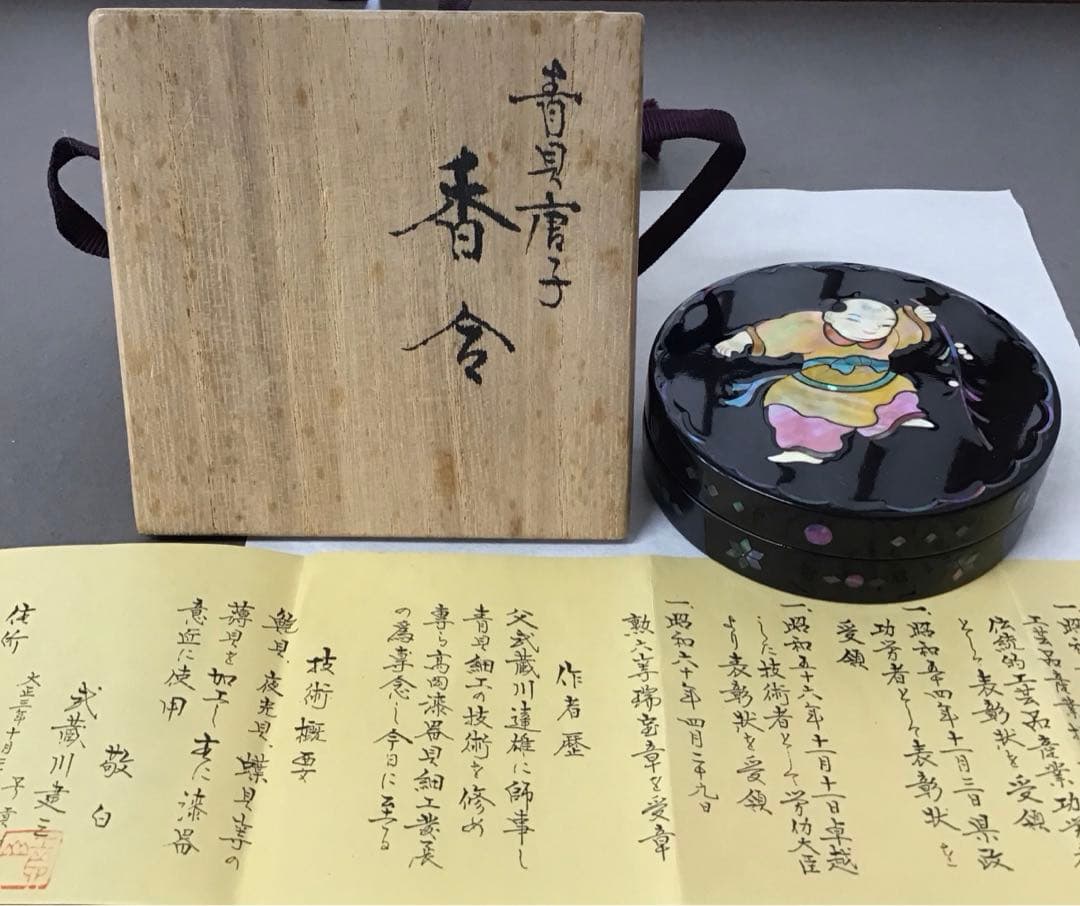 青貝唐子
香合
伝統的工芸品産業功労
として表彰状を受領
一、昭和五十四年十一月三日県政
功労者として表彰状を
受領
一、昭和五十六年十一月十一日卓越
した技術者として労仂大臣
より表彰状を受領
一、昭和六十年四月二十九日
勲六等瑞宝章を受章
作者歴
父武蔵川達雄に師事し
青貝細工の技術を修め
専ら高岡漆器貝細工発展
の為専念し今日に至る
技術概要
鮑貝、夜光貝、蝶貝等の
薄貝を加工し主に漆器
意匠に使用
敬白
武蔵川建三
大正三年十月
住所